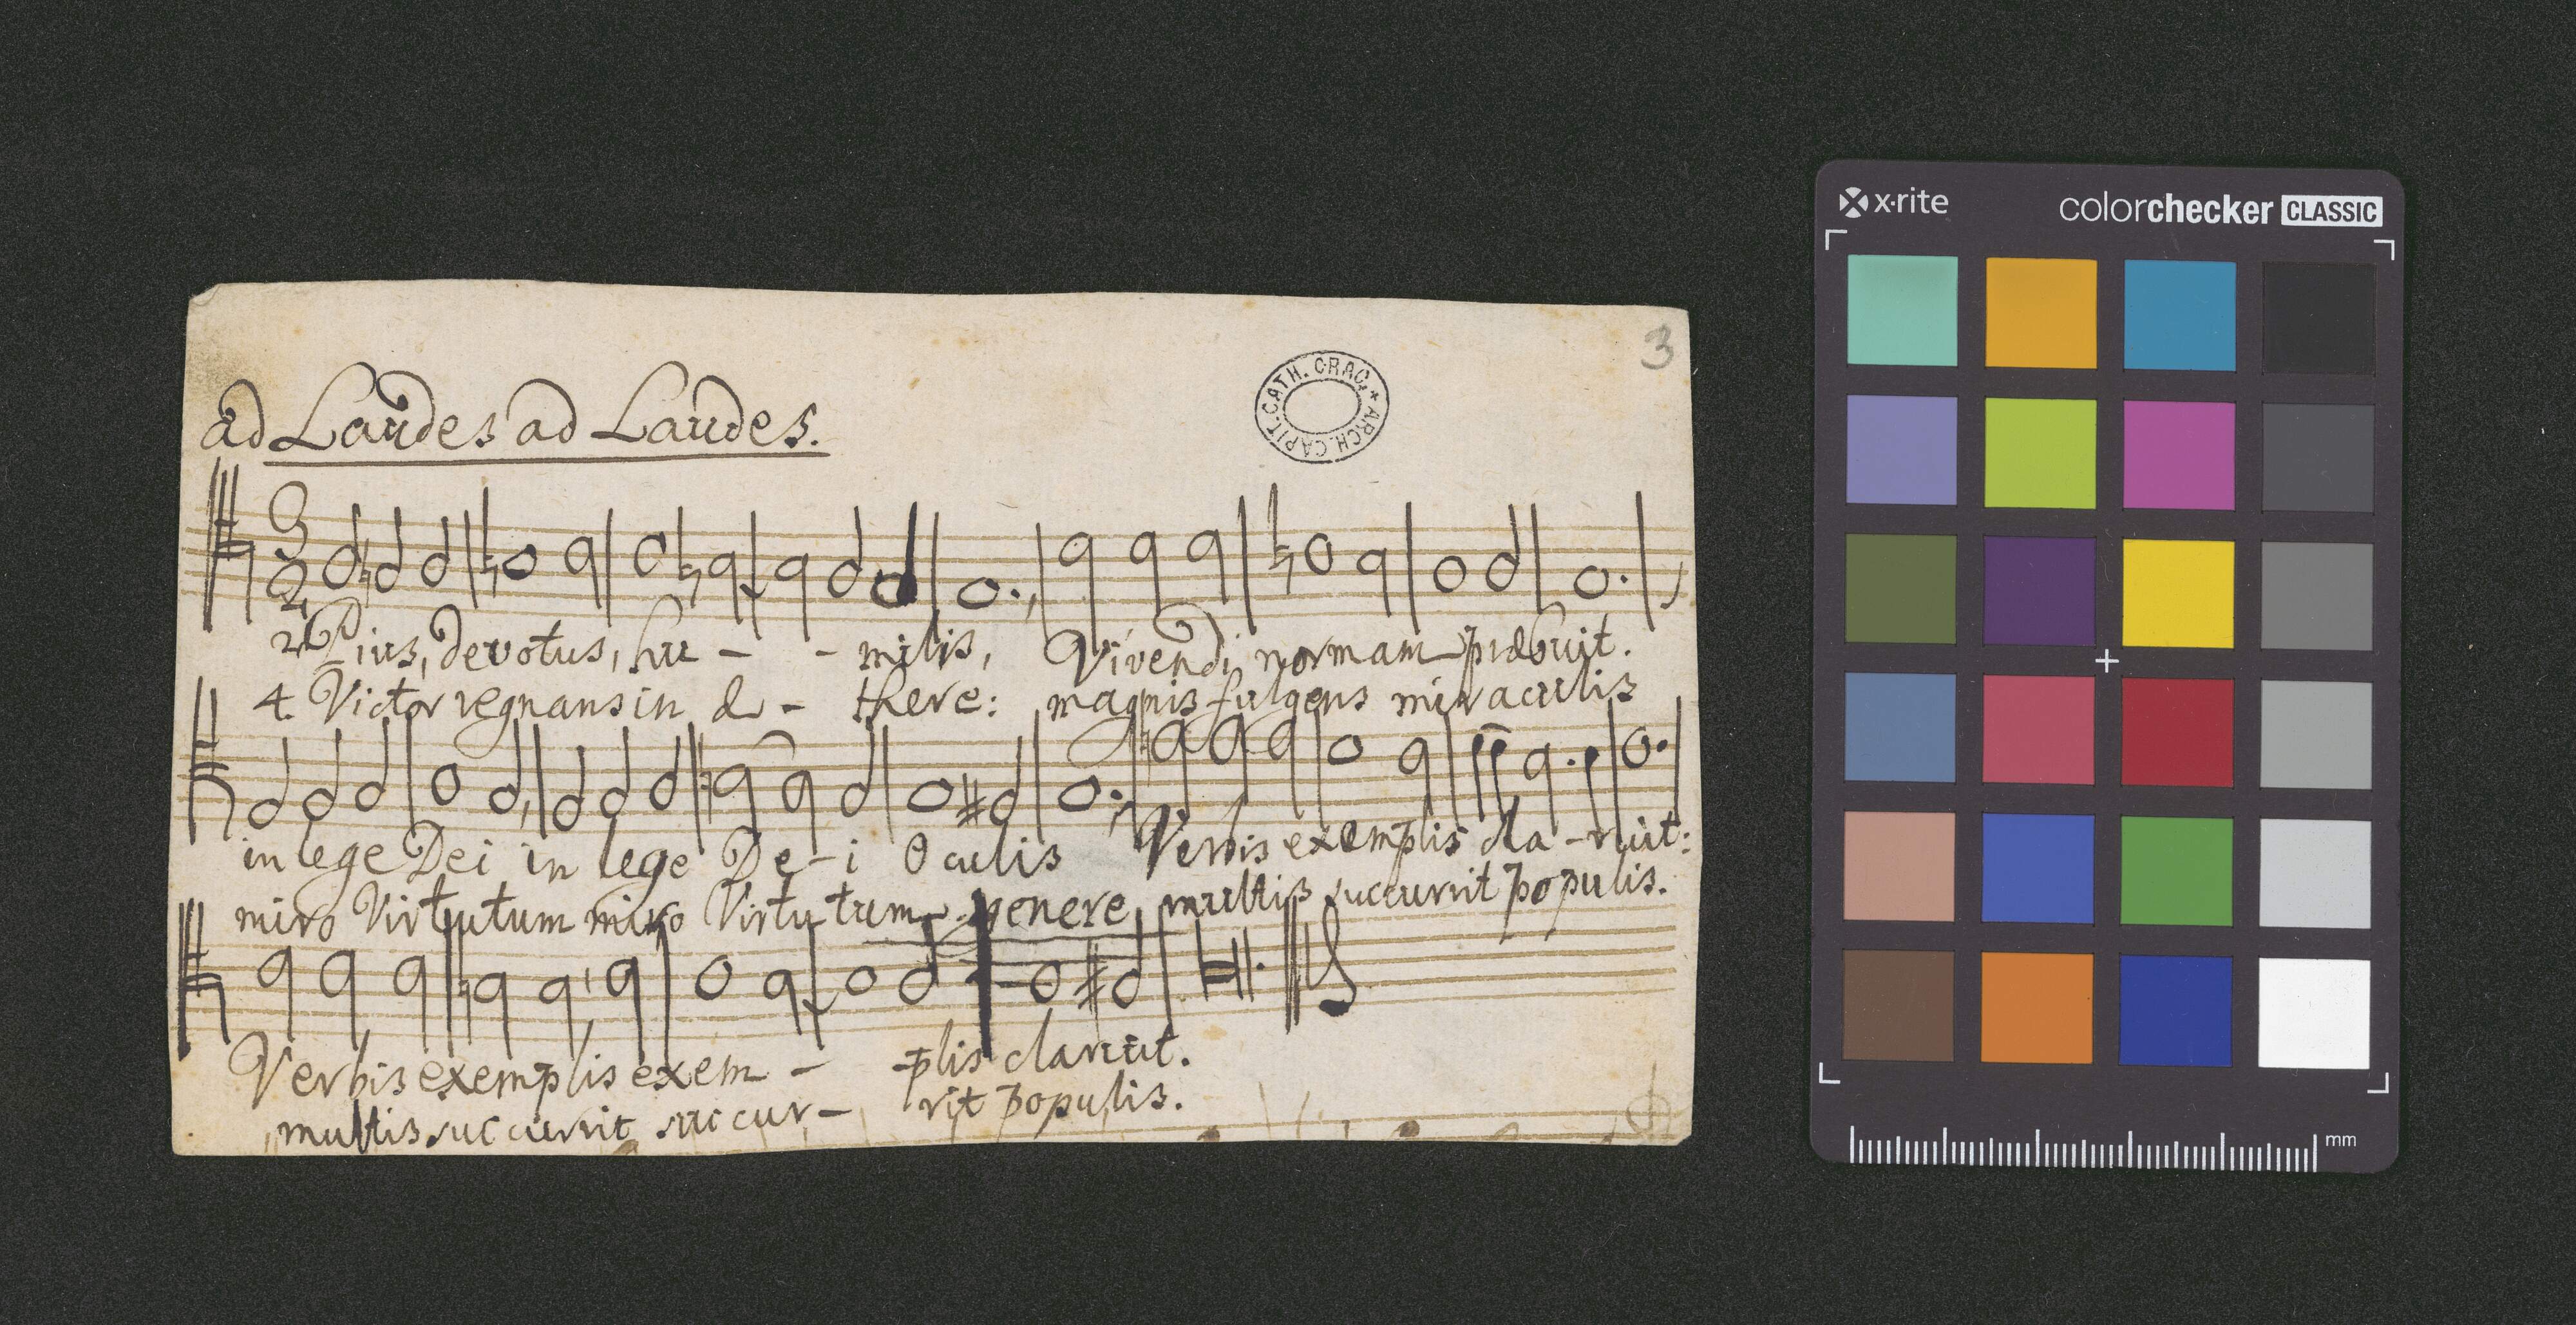 3
ARCH. CAPIT. CATH. CRAC.
ad Laudes ad Laudes.
3
2
2. Pius, devotus, hu - - milis, Vivendi normam præbuit.
4. Victor regnans in æ - there: magnis fulgens miraculis
in lege Dei in lege De - i Oculis Verbis exemplis cla - ruit:
miro Virtutum miro Virtutum genere, multis succurrit populis.
Verbis exemplis exem - plis claruit.
multis succurrit succur - rit populis.
x·rite
colorchecker CLASSIC
mm